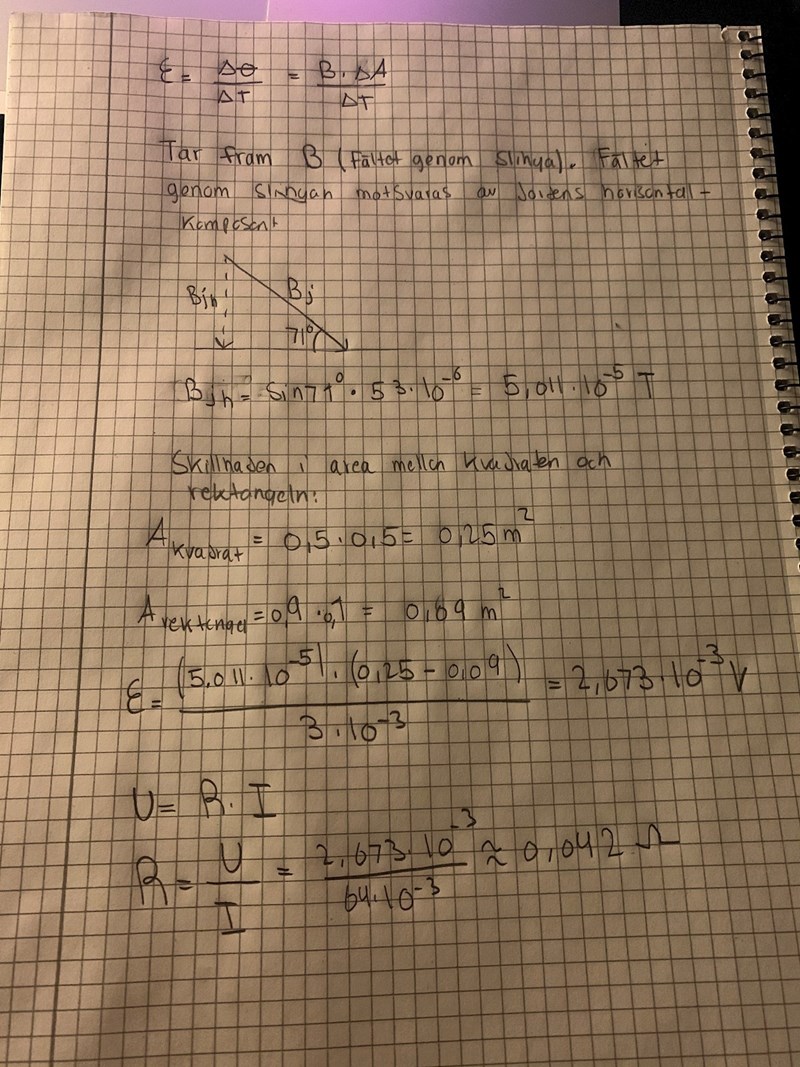 Ɛ = ΔΘ/ΔT = B · ΔA/ΔT
Tar fram B (Fältet genom Slinga). Fältet
genom slingan motsvaras av Jordens horisontal-
Komposant
Bjh Bj
71°
Bjh = Sin71° · 53·10^-6 = 5,011·10^-5 T
Skillnaden i area mellan kvadraten och
rektangeln:
A kvadrat = 0,5 · 0,5 = 0,25 m^2
A rektangel = 0,9 · 0,1 = 0,09 m^2
Ɛ = (5,011·10^-5) · (0,25 - 0,09) / 3·10^-3 = 2,673·10^-3 V
U = R · I
R = U/I = 2,673·10^-3 / 64·10^-3 ≈ 0,042 Ω